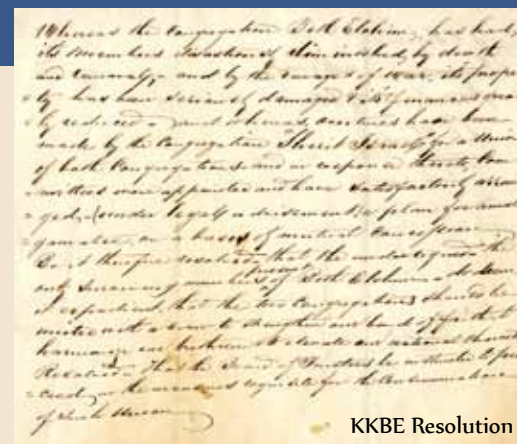 Whereas the Congregation Beth Elohim, has had,
its members diminished, by death
and removals, and by the ravages of war, its proper
= ty has been seriously damaged & its finances great
= ly reduced and whereas, overtures have been
made by the Congregation "Sherit Israel" for a Union
of both Congregations, and in response thereto Com
= mittees were appointed and have satisfactorily arran
= ged, (under legal advisement) a plan for amal
= gamation, on a basis of mutual Concession
Be it therefore resolved that the undersigned the
only surviving members of Beth Elohim do deem
it expedient, that the two Congregations should be
united with a view to strengthen our band of faith &
harmonize our brethren & elevate our national
Resolved That the Board of Trustees be instructed to pro
= ceed, in the measures requisite for the Consummation
of such Union
KKBE Resolution